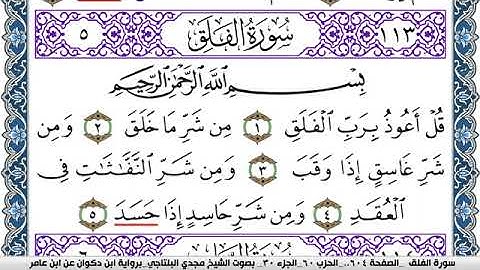 ١١٣ سُورَةُ الفَلَقِ ٥
بِسْمِ اللَّهِ الرَّحْمَٰنِ الرَّحِيمِ
قُلْ أَعُوذُ بِرَبِّ الْفَلَقِ ١ مِن شَرِّ مَا خَلَقَ ٢ وَمِن
شَرِّ غَاسِقٍ إِذَا وَقَبَ ٣ وَمِن شَرِّ النَّفَّاثَاتِ فِي
الْعُقَدِ ٤ وَمِن شَرِّ حَاسِدٍ إِذَا حَسَدَ ٥
سورة الفلق _الصفحة ٦٠٤_ الحزب ٦٠_الجزء ٣٠_ بصوت الشيخ مجدي البلتاجي_برواية ابن ذكوان عن ابن عامر